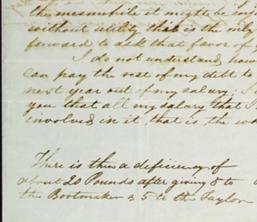 the meanwhile
without utility that is the only
forward, to ask that favor of
I do not understand how
can pay the rest of my debt to
next year out of my salary; I
you that all my salary that I
involved in it, that is the
There is thus a deficiency of
about 20 Pounds after giving 5 to
the Bootmaker & 5 to the Taylor